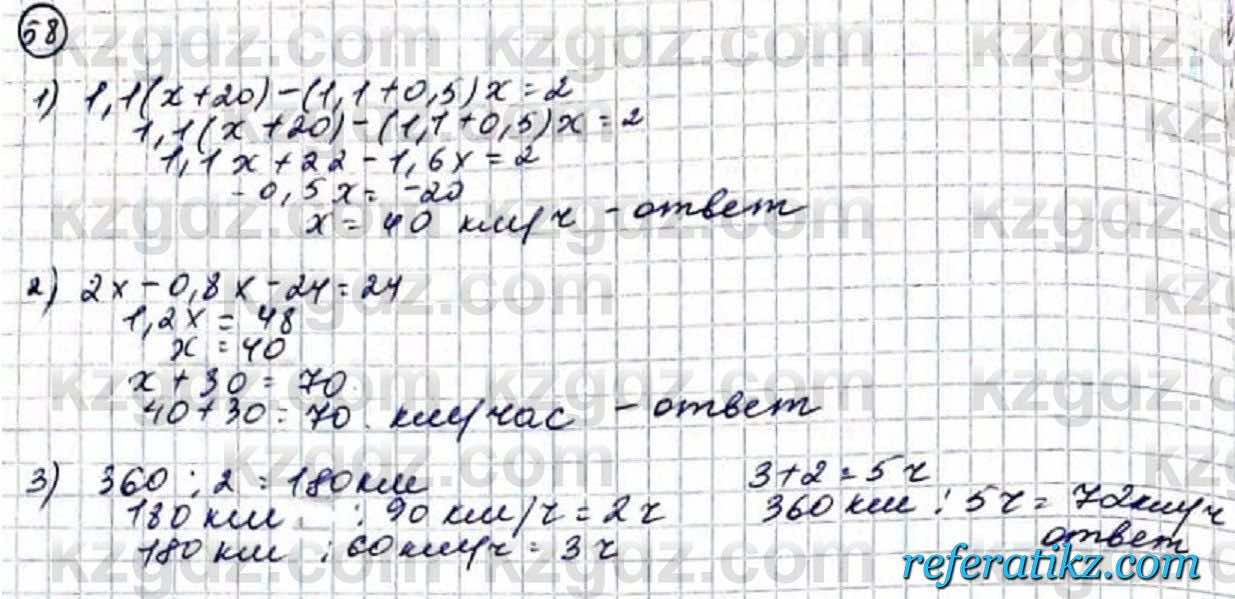 58
1) 1,1(x+20)-(1,1+0,5)x=2
1,1(x+20)-(1,1+0,5)x=2
1,1x+22-1,6x=2
-0,5x=-20
x=40 км/ч - ответ
2) 2x-0,8x-24=24
1,2x=48
x=40
x+30=70
40+30=70 км/час - ответ
3) 360:2=180км
180км:90км/ч=2ч
180км:60км/ч=3ч
3+2=5ч
360км:5ч=72км/ч
ответ
referatikz.com
kzgdz.com